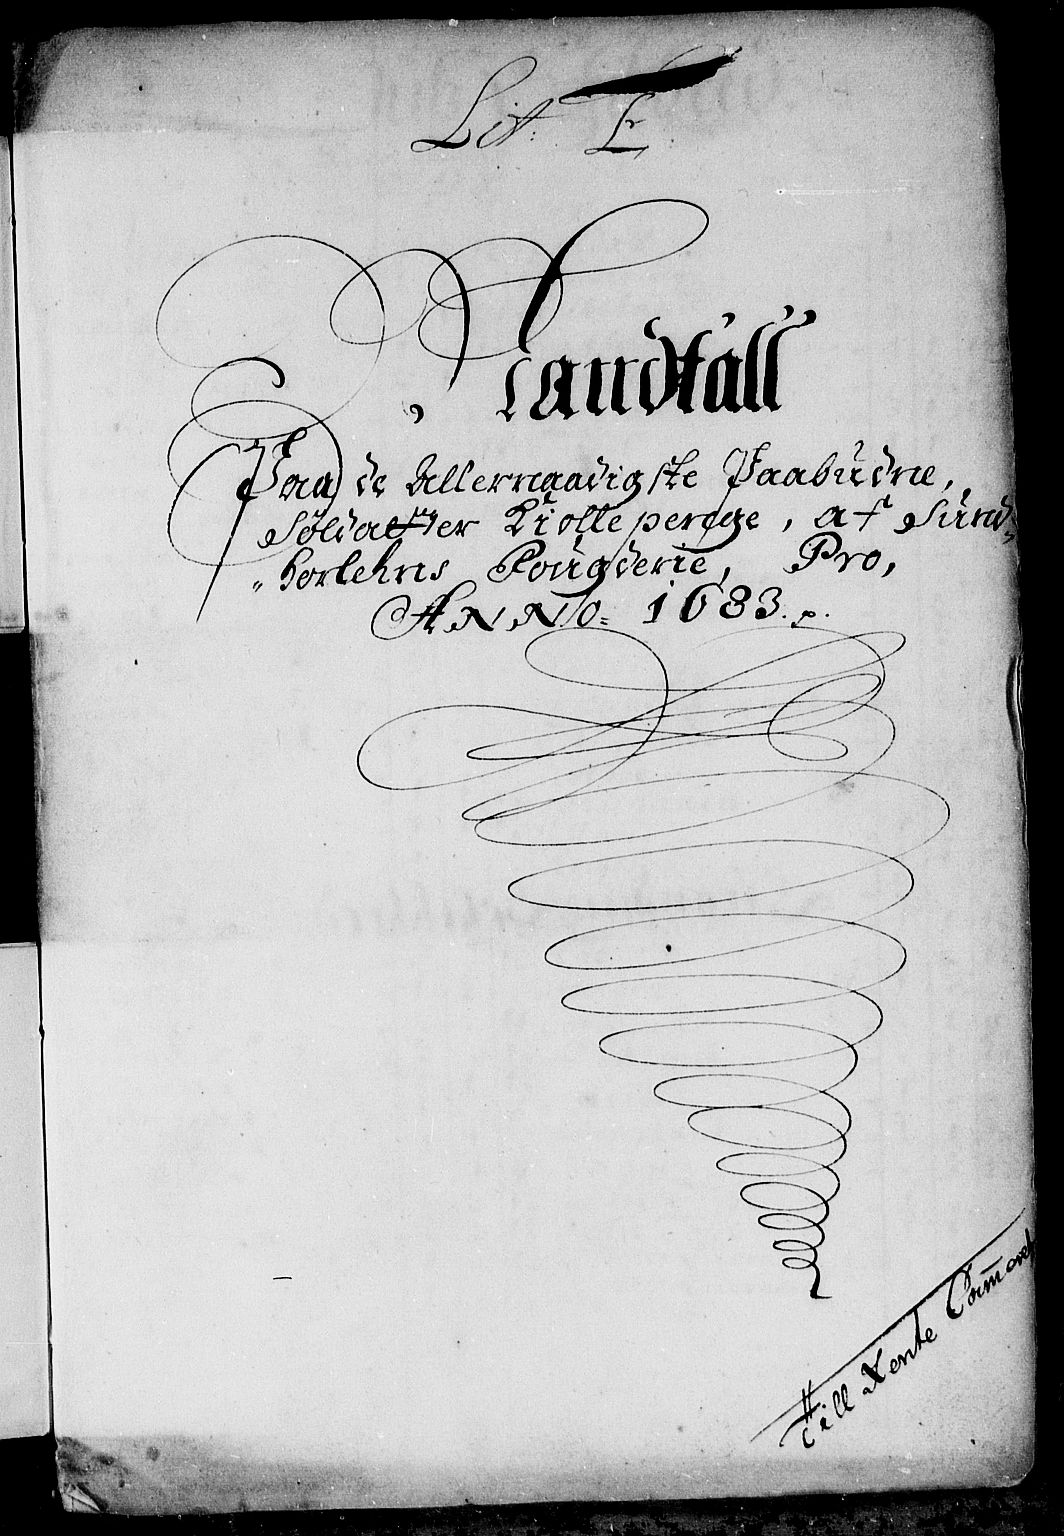 Lit: E
Mandtall
Paa de Allernaadigste Paabudne,
Soldatter Kiolle penge, af Sund=
horlehns Fougderie, Pro,
ANNO= 1683.
Till Rente Cameret